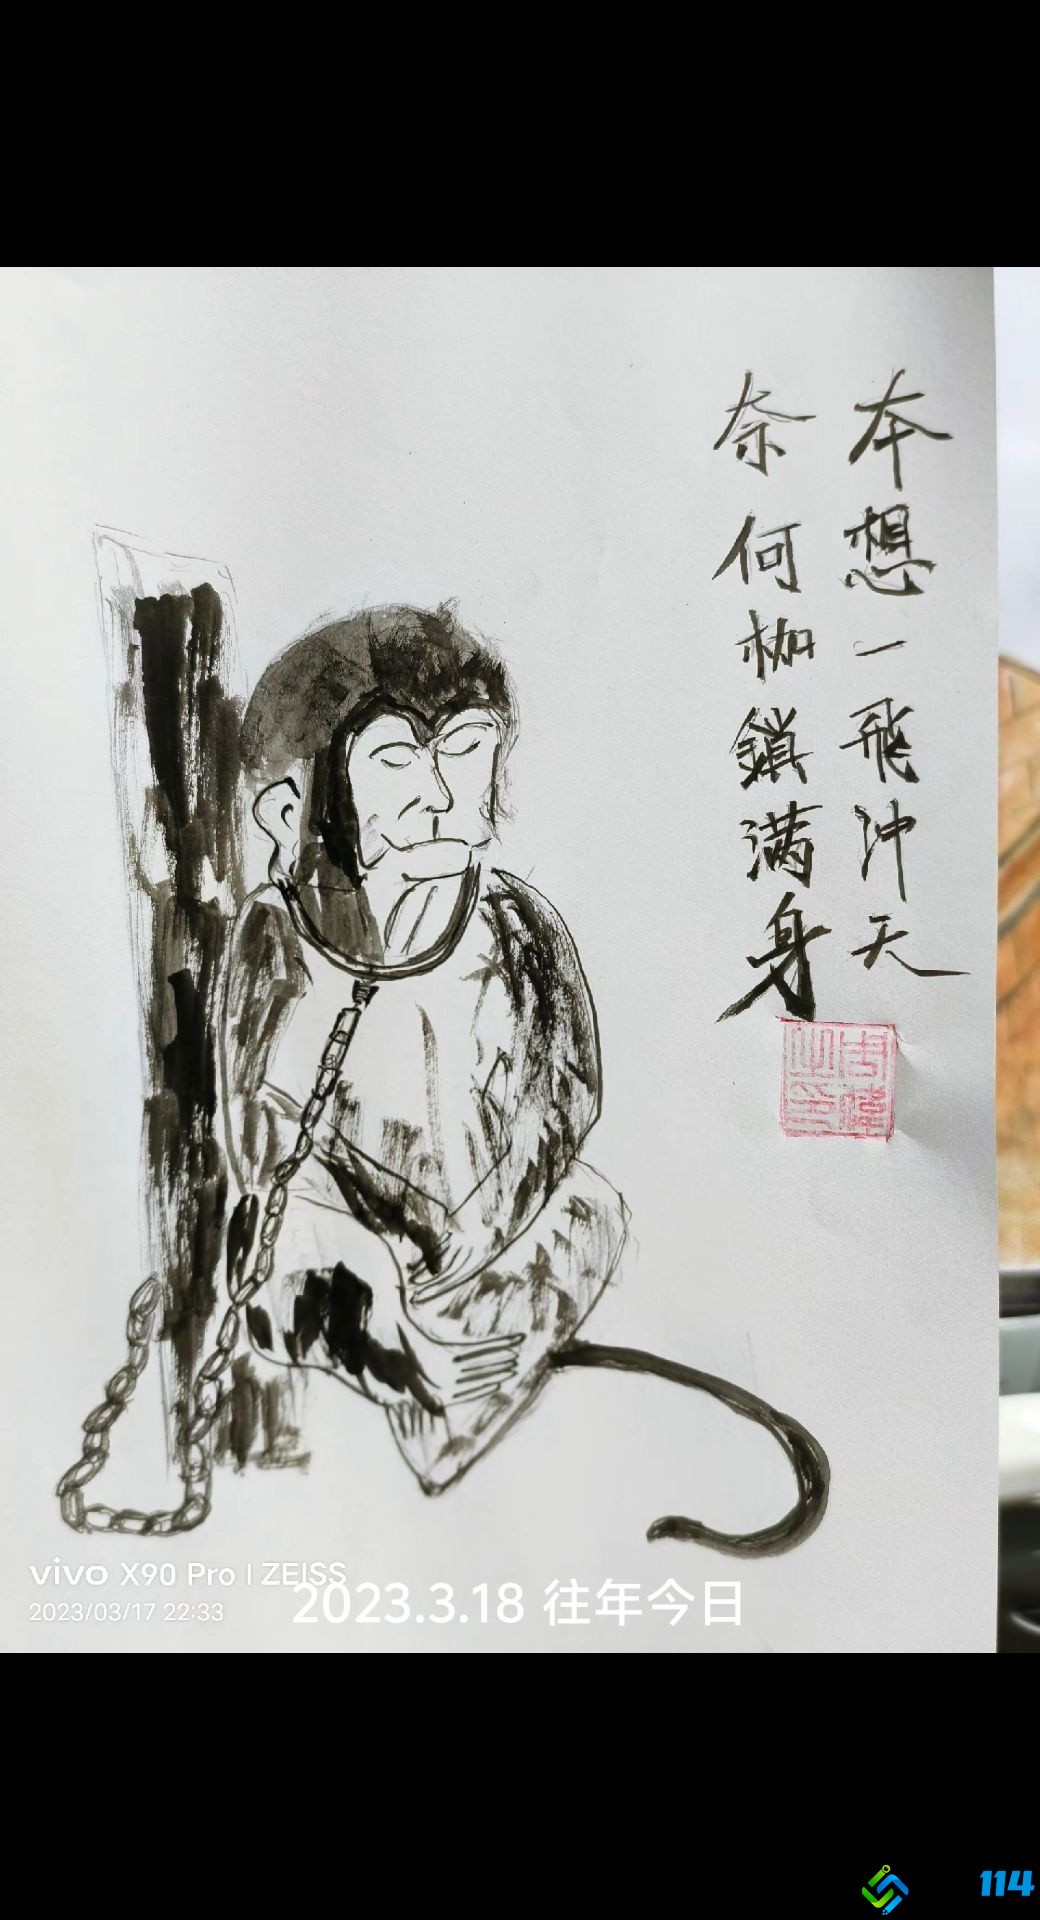 本想一飛沖天
奈何枷鎖满身
vivo X90 Pro | ZEISS
2023/03/17 22:33
2023.3.18 往年今日
114